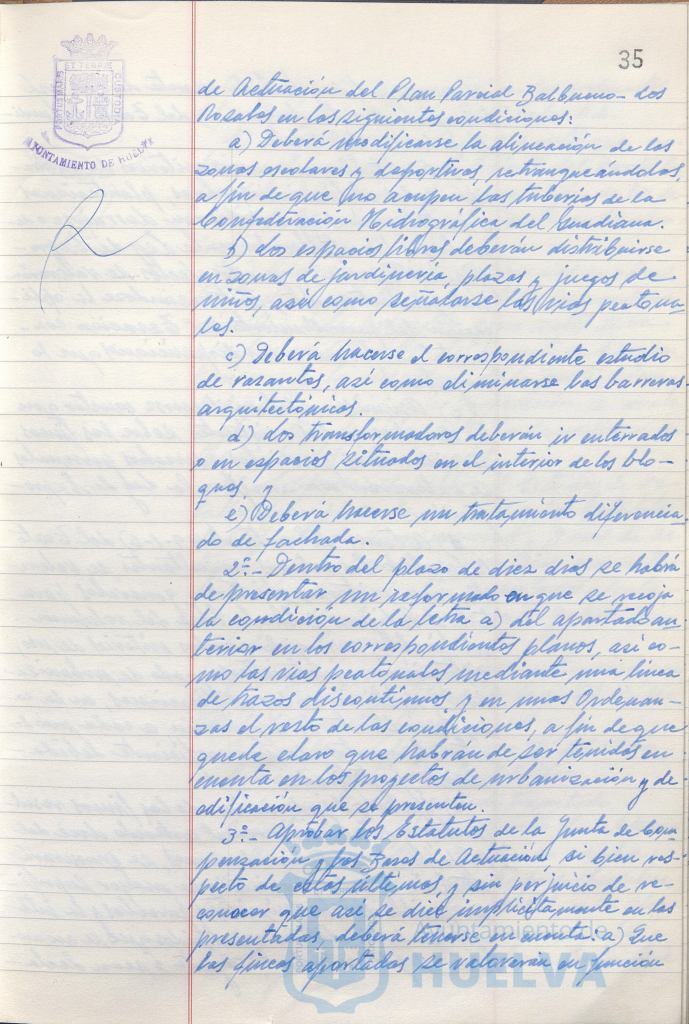 35
PORTUS MARIS ET TERRAE CUSTODIA
AYUNTAMIENTO DE HUELVA
de Actuación del Plan Parcial Balbueno-Los
Rosales en los siguientes condiciones:
a) Deberá modificarse la alineación de las
zonas escolares y deportivas, retranqueándolas,
a fin de que no ocupen las tuberías de la
Confederación Hidrográfica del Guadiana.
b) Los espacios libres deberán distribuirse
en zonas de jardinería, plazas y juegos de
niños, así como señalarse las vías peatona-
les.
c) Deberá hacerse el correspondiente estudio
de rasantes, así como eliminarse las barreras
arquitectónicas.
d) Los transformadores deberán ir enterrados
o en espacios situados en el interior de los blo-
ques, y
e) Deberá hacerse un tratamiento diferencia-
do de fachada.
2º.- Dentro del plazo de diez días se habrá
de presentar un reformado en que se recoja
la condición de la letra a) del apartado an-
terior en los correspondientes planos, así co-
mo las vías peatonales mediante una línea
de trazos discontinuos, y en unas Ordenan-
zas el resto de las condiciones, a fin de que
quede claro que habrán de ser tenidas en
cuenta en los proyectos de urbanización y de
edificación que se presenten.
3º.- Aprobar los Estatutos de la Junta de Com-
pensación y las Bases de Actuación, si bien res-
pecto de estas últimas, y sin perjuicio de re-
conocer que así se dice implícitamente en las
presentadas, deberá tenerse en cuenta: a) Que
las fincas aportadas se valorarán en función
Ayuntamiento de
HUELVA